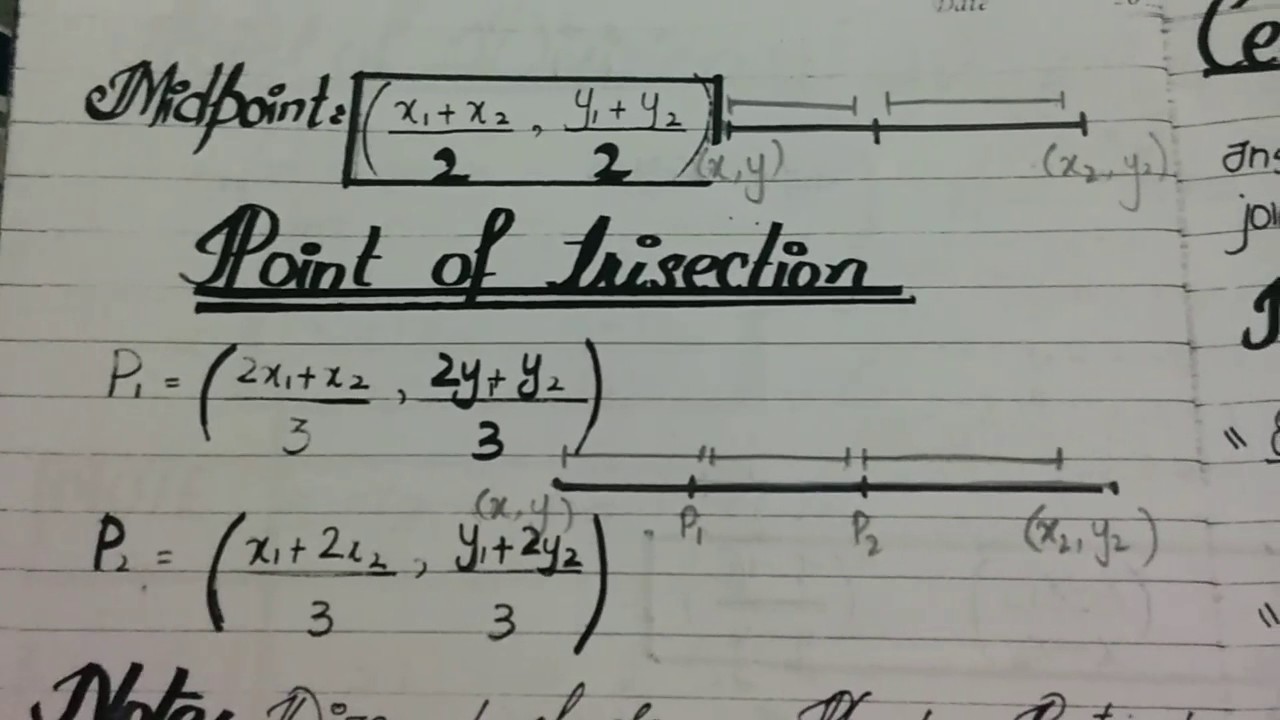 Date
Midpoint: ( x₁ + x₂ / 2 , y₁ + y₂ / 2 )
(x, y) (x₂, y₂)
Point of trisection
P₁ = ( 2x₁ + x₂ / 3 , 2y₁ + y₂ / 3 )
(x, y) P₁ P₂ (x₂, y₂)
P₂ = ( x₁ + 2x₂ / 3 , y₁ + 2y₂ / 3 )
Note: